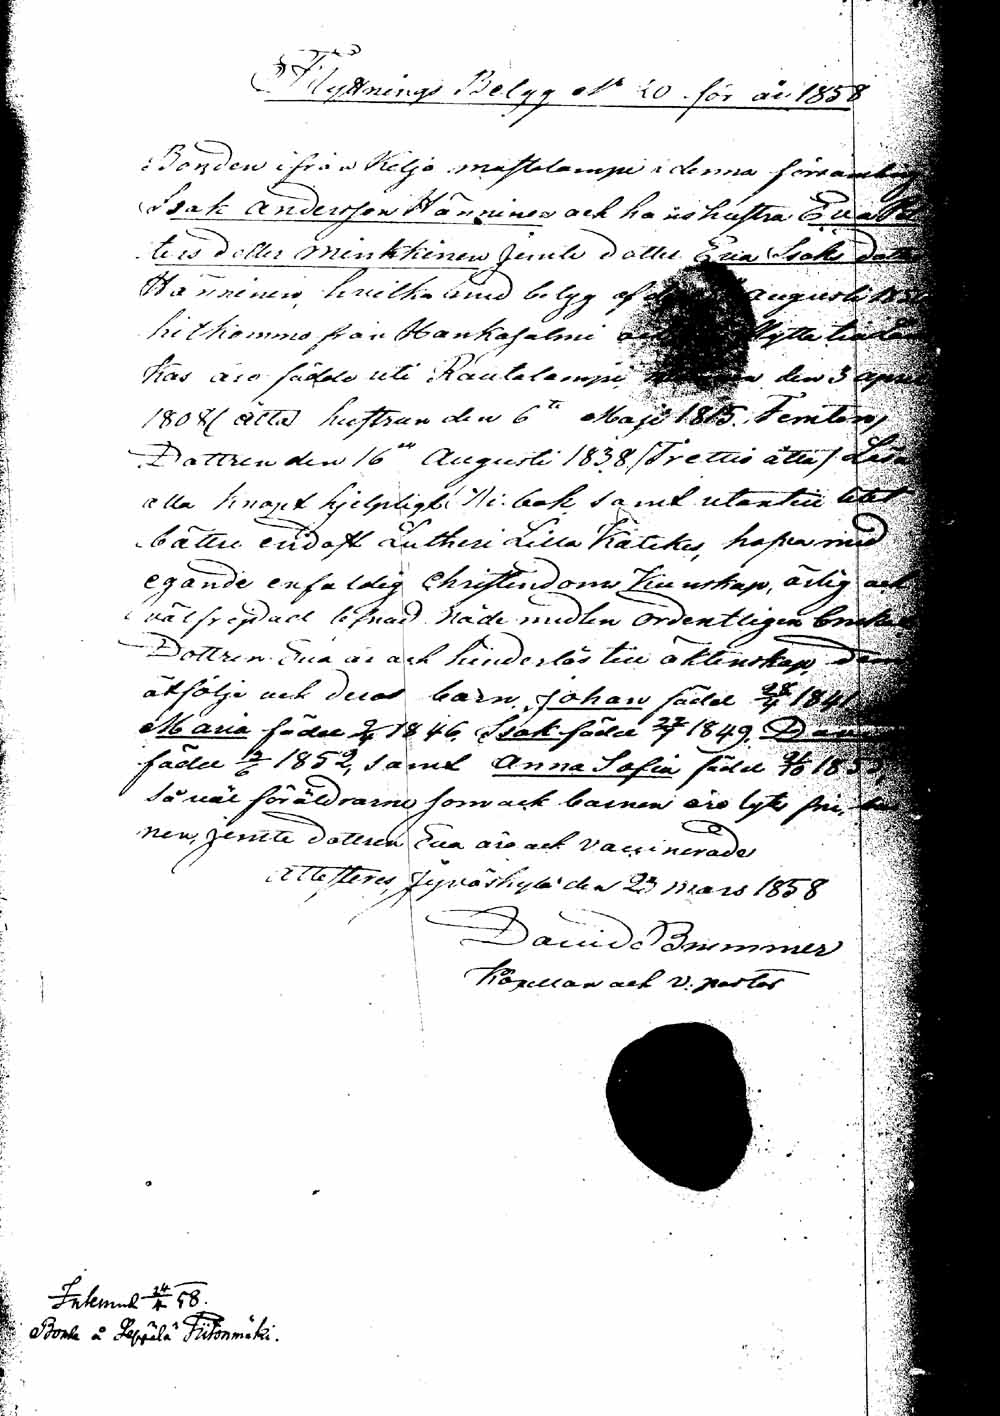 Flyttnings Belyg No 20 för år 1858
Bonden ifrån Keljo mustalampi i denna församling
Isak Andersson Hänninen ock hans hustru Eva Pe
ters dotter Minkkinen jemte dotter Eva Isaks dotter
Hänninen, hvilka med belyg af den augusti 185
hitkommo från Hankasalmi flytta
kas äro födde uti Rautalampi den 3 april
1808 (åtta) hustrun den 6te Maji 1815. Femton,
Dottren den 16de Augusti 1838 /Trettio åtta/ Läsa
alla knapt hjelpligt i bok samt utantill litet
bättre endast Lutheri Lilla Katekes, hafva mid
egande enfaldig Christendoms Kunskap, ärlig ock
välfrejdad lefnad Nåde medlen ordentligen brukat
Dottren Eva är ock hinderlös till äktenskap, dem
åtfölje ock deras barn, Johan född 28/4 1841
Maria född 2/4 1846, Isak född 27/7 1849,
född 12/6 1852, samt Anna Sofia född /10 185
så väl föräldrarne som ock barnen äro lytes fri, bar
nen, jemte dottren Eva äro ock vaccinerade
Attesteres Jyväskylä den 23 mars 1858
David Brummer
Kapellan ock v. pastor
Inlemnad 24/4 58.
Bonde å Leppälä Tiitonmäki.